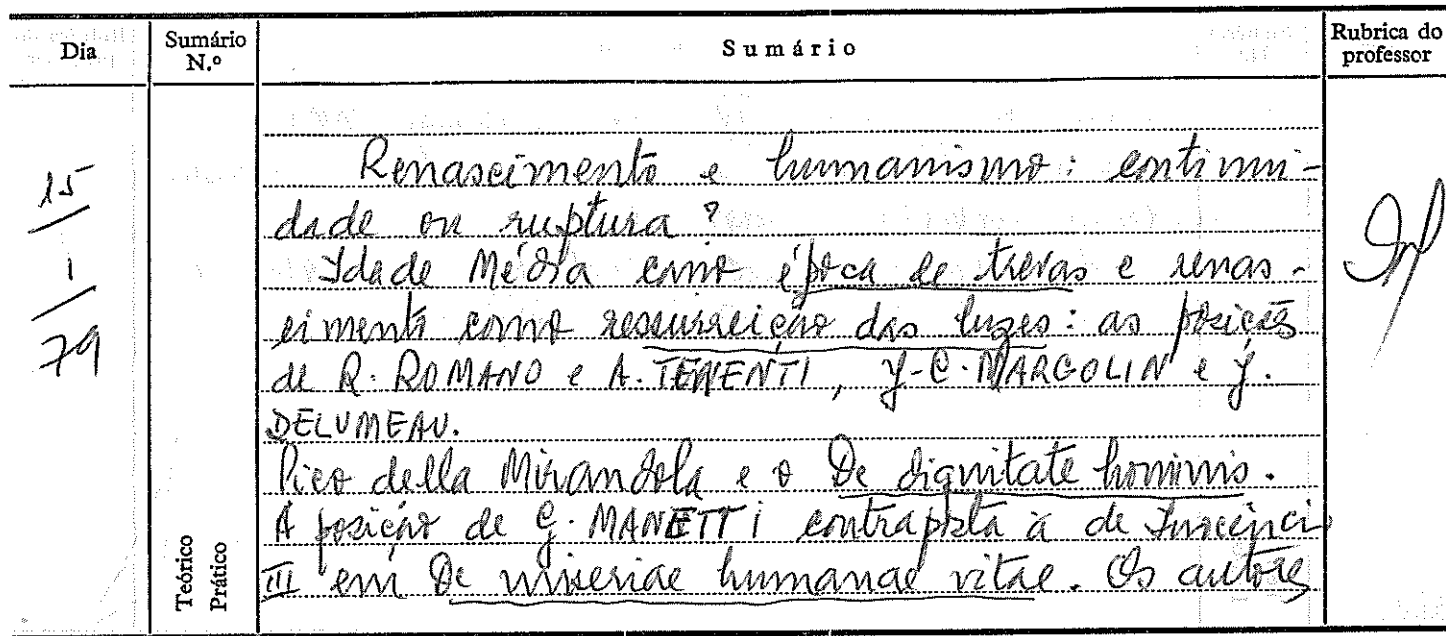 Dia
Sumário N.º
Sumário
Rubrica do professor
15
1
79
Renascimento e humanismo: continui-
dade ou ruptura?
Idade Média como época de trevas e renas-
cimento como ressurreição das luzes: as posições
de R. ROMANO e A. TENENTI, J-C. MARGOLIN e J.
DELUMEAU.
Pico della Mirandola e o De dignitate hominis.
A posição de G. MANETTI contraposta à de Inocênci
III em De miseriae humanae vitae. Os autores
Teórico
Prático